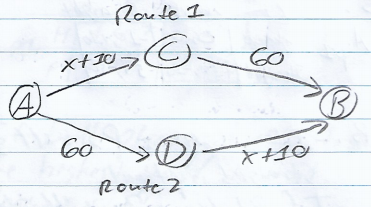 Route 1
x+10 C 60
A B
60 D x+10
Route 2